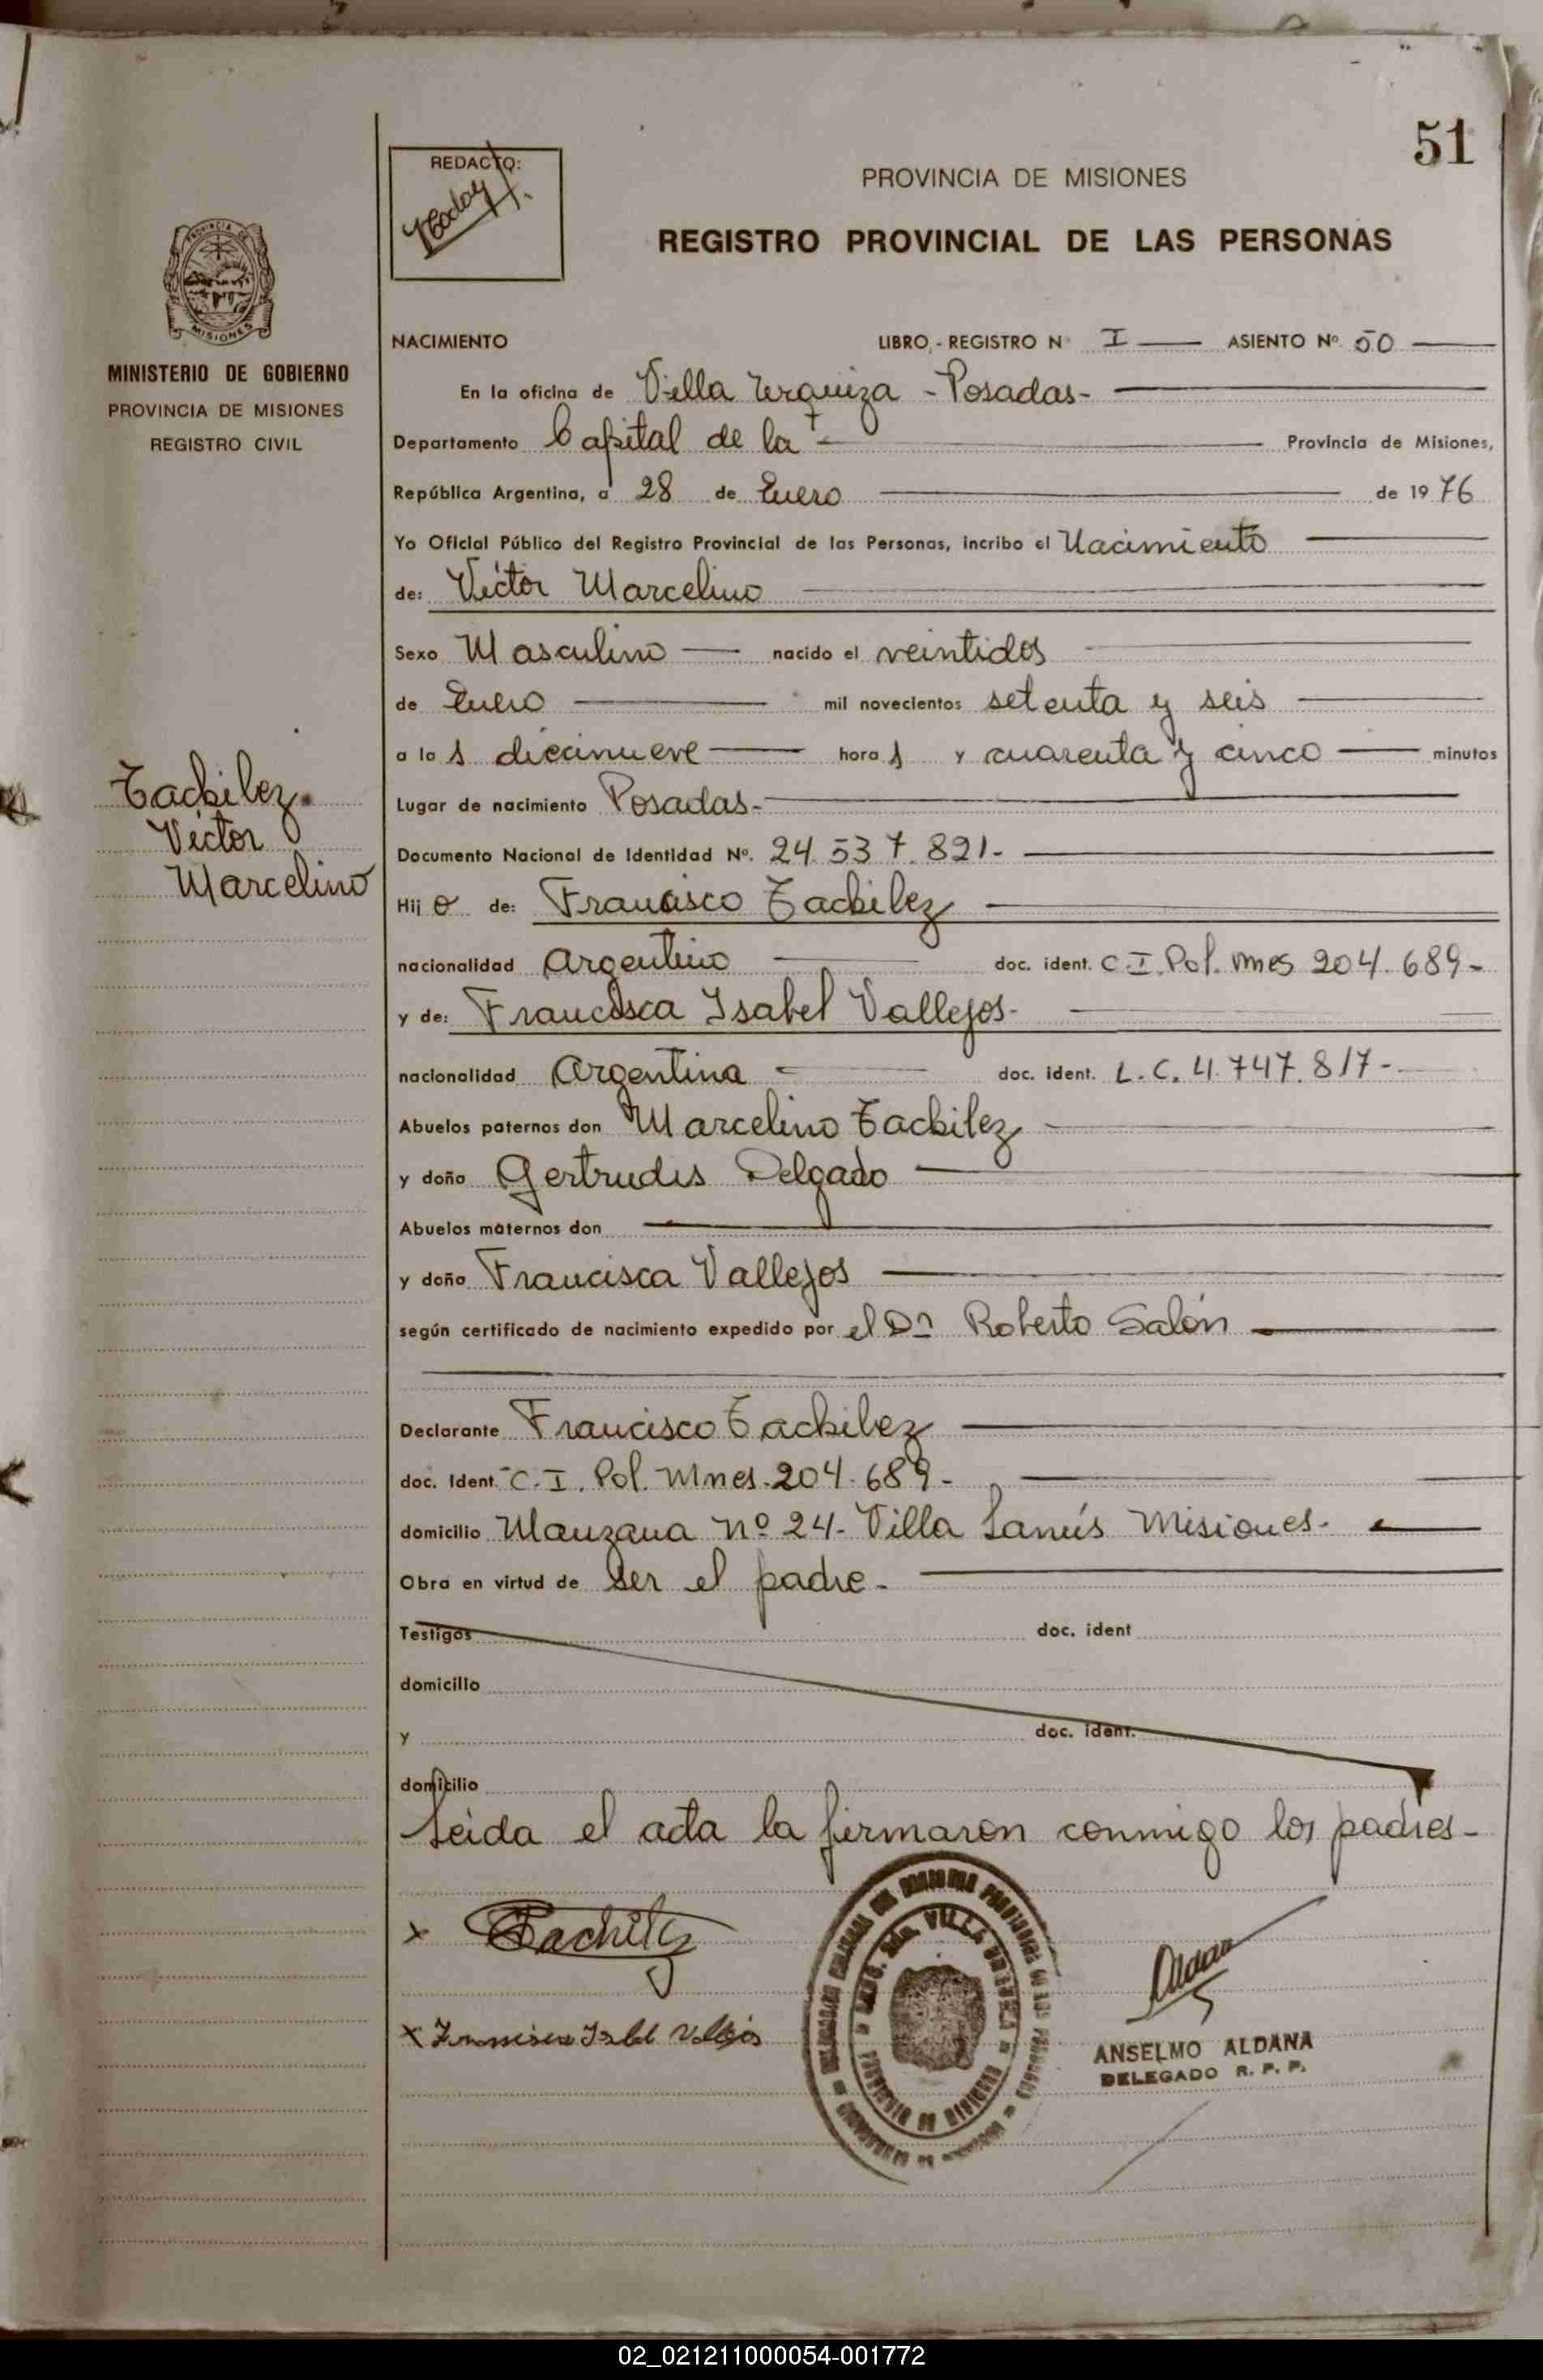 51
REDACTO:
PROVINCIA DE MISIONES
REGISTRO PROVINCIAL DE LAS PERSONAS
PROVINCIA DE
MISIONES
MINISTERIO DE GOBIERNO
PROVINCIA DE MISIONES
REGISTRO CIVIL
Tackilez.
Víctor
Marcelino
NACIMIENTO LIBRO - REGISTRO Nº I ASIENTO Nº 50
En la oficina de Villa Urquiza - Posadas-
Departamento Capital de la - Provincia de Misiones,
República Argentina, a 28 de Enero de 1976
Yo Oficial Público del Registro Provincial de las Personas, incribo el Nacimiento
de: Víctor Marcelino
Sexo Masculino nacido el veintidos
de Enero mil novecientos setenta y seis
a las diecinueve horas y cuarenta y cinco minutos
Lugar de nacimiento Posadas.-
Documento Nacional de Identidad Nº. 24.537.821-
Hijo de: Francisco Tackilez
nacionalidad Argentino doc. ident. C.I. Pol. Mnes 204.689-
y de: Francisca Isabel Vallejos-
nacionalidad Argentina - doc. ident. L.C. 4.747.817-
Abuelos paternos don Marcelino Tackilez
y doña Gertrudis Delgado
Abuelos maternos don
y doña Francisca Vallejos
según certificado de nacimiento expedido por el Dr Roberto Salón
Declarante Francisco Tackilez
doc. Ident. C.I. Pol. Mnes. 204.689-
domicilio Manzana Nº 24- Villa Lanús Misiones-
Obra en virtud de ser el padre-
Testigos doc. ident
domicilio
y doc. ident.
domicilio
Leida el acta la firmaron conmigo los padres-
x Tachilez
x Francisca Isabel Vallejos
Aldana
ANSELMO ALDANA
DELEGADO R. P. P.
02_021211000054-001772